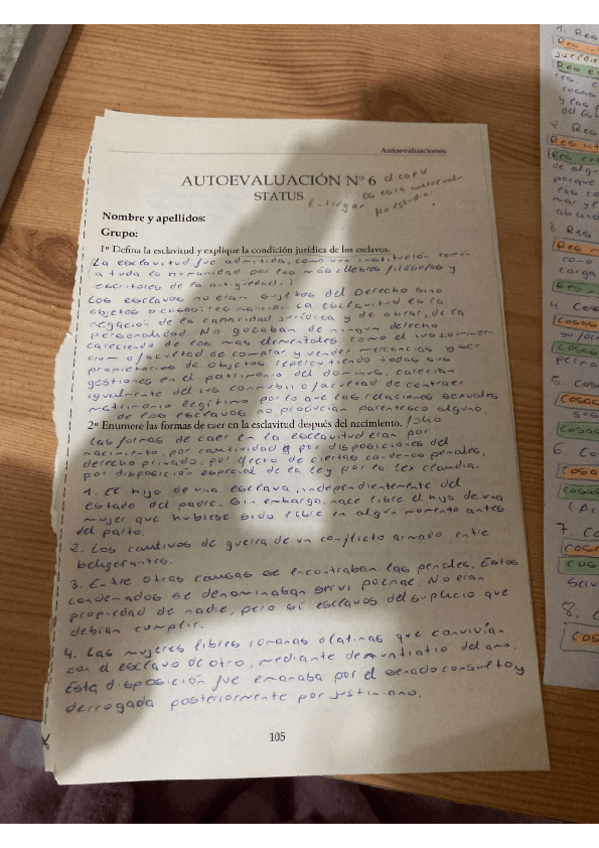 Autoevaluaciones
AUTOEVALUACIÓN Nº 6
STATUS
Entregar
No estudiar
Nombre y apellidos:
Grupo:
1º Defina la esclavitud y explique la condición jurídica de los esclavos.
La esclavitud fue admitida, como una institución
a toda la humanidad por los más célebres filósofos y
escritores de la antigüedad.
Los esclavos no eran sujetos del Derecho sino
objetos o cosas: res mancipi. La esclavitud es la
negación de la capacidad jurídica y de obrar, de la
personalidad. No gozaban de ningún derecho
careciendo de los mas elementales como el ius commer-
cium o facultad de comprar y vender mercancías y ser
propietarios de objetos repercutiendo todas sus
gestiones en el patrimonio del dominus. Carecían
igualmente del ius connubii o facultad de contraer
matrimonio legítimo por lo que las relaciones sexuales
de los esclavos no producían parentesco alguno.
2º Enumere las formas de caer en la esclavitud después del nacimiento.
Las formas de caer en la esclavitud eran por
nacimiento, por cautividad, por disposiciones del
derecho privado, por efecto de ciertas condenas penales,
por disposición especial de la ley por la lex Claudia.
1. El hijo de una esclava, independientemente del
estado del padre. Sin embargo, nace libre el hijo de una
mujer que hubiese sido libre en algún momento antes
del parto.
2. Los cautivos de guerra de un conflicto armado entre
beligerantes.
3. Entre otras causas se encontraban las penales. Estos
condenados se denominaban servi poenae. No eran
propiedad de nadie, pero sí esclavos del suplicio que
debían cumplir.
4. Las mujeres libres romanas o latinas que convivían
con el esclavo de otro, mediante denuntiatio del amo.
Esta disposición fue emanaba por el senado consulto y
derrogada posteriormente por Justiniano.
105